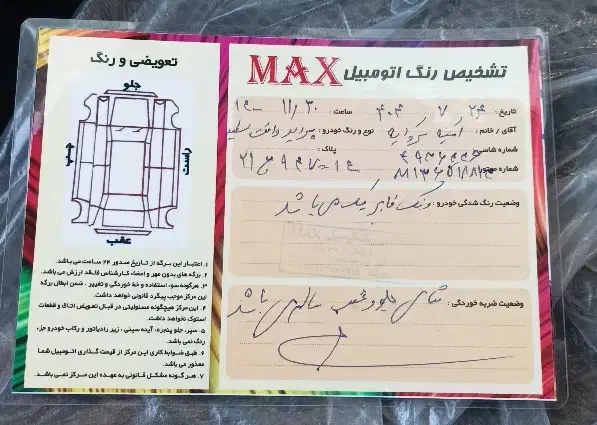 تشخیص رنگ اتومبیل MAX
تاریخ: ۴۰۴ ۷ ۲۴ ساعت: ۱۱/۳۰
آقای / خانم: نوع و رنگ خودرو: پراید وانت سفید
شماره شاسی: پلاک:
شماره موتور:
وضعیت رنگ شدگی خودرو: رنگ فابریک می باشد
MAX
وضعیت ضربه خوردگی: جلو و عقب سالم می باشد
تعویضی و رنگ
جلو
چپ
راست
عقب
۱. اعتبار این برگه از تاریخ صدور ۲۴ ساعت می باشد.
۲. برگه های بدون مهر و امضاء کارشناس فاقد ارزش می باشد.
۳. هرگونه سوء استفاده و خط خوردگی و تغییر ، ضمن ابطال برگه
این مرکز موجب پیگرد قانونی خواهد داشت.
۴. این مرکز هیچگونه مسئولیتی در قبال تعویض اتاق و قطعات
استوک نخواهد داشت.
۵. سپر، جلو پنجره، آینه، سینی ، زیر رادیاتور و رکاب خودرو جزء
رنگ نمی باشد.
۶. طبق ضوابط کاری این مرکز از قیمت گذاری اتومبیل شما
معذور می باشد.
۷. هر گونه مشکل قانونی به عهده این مرکز نمی باشد.